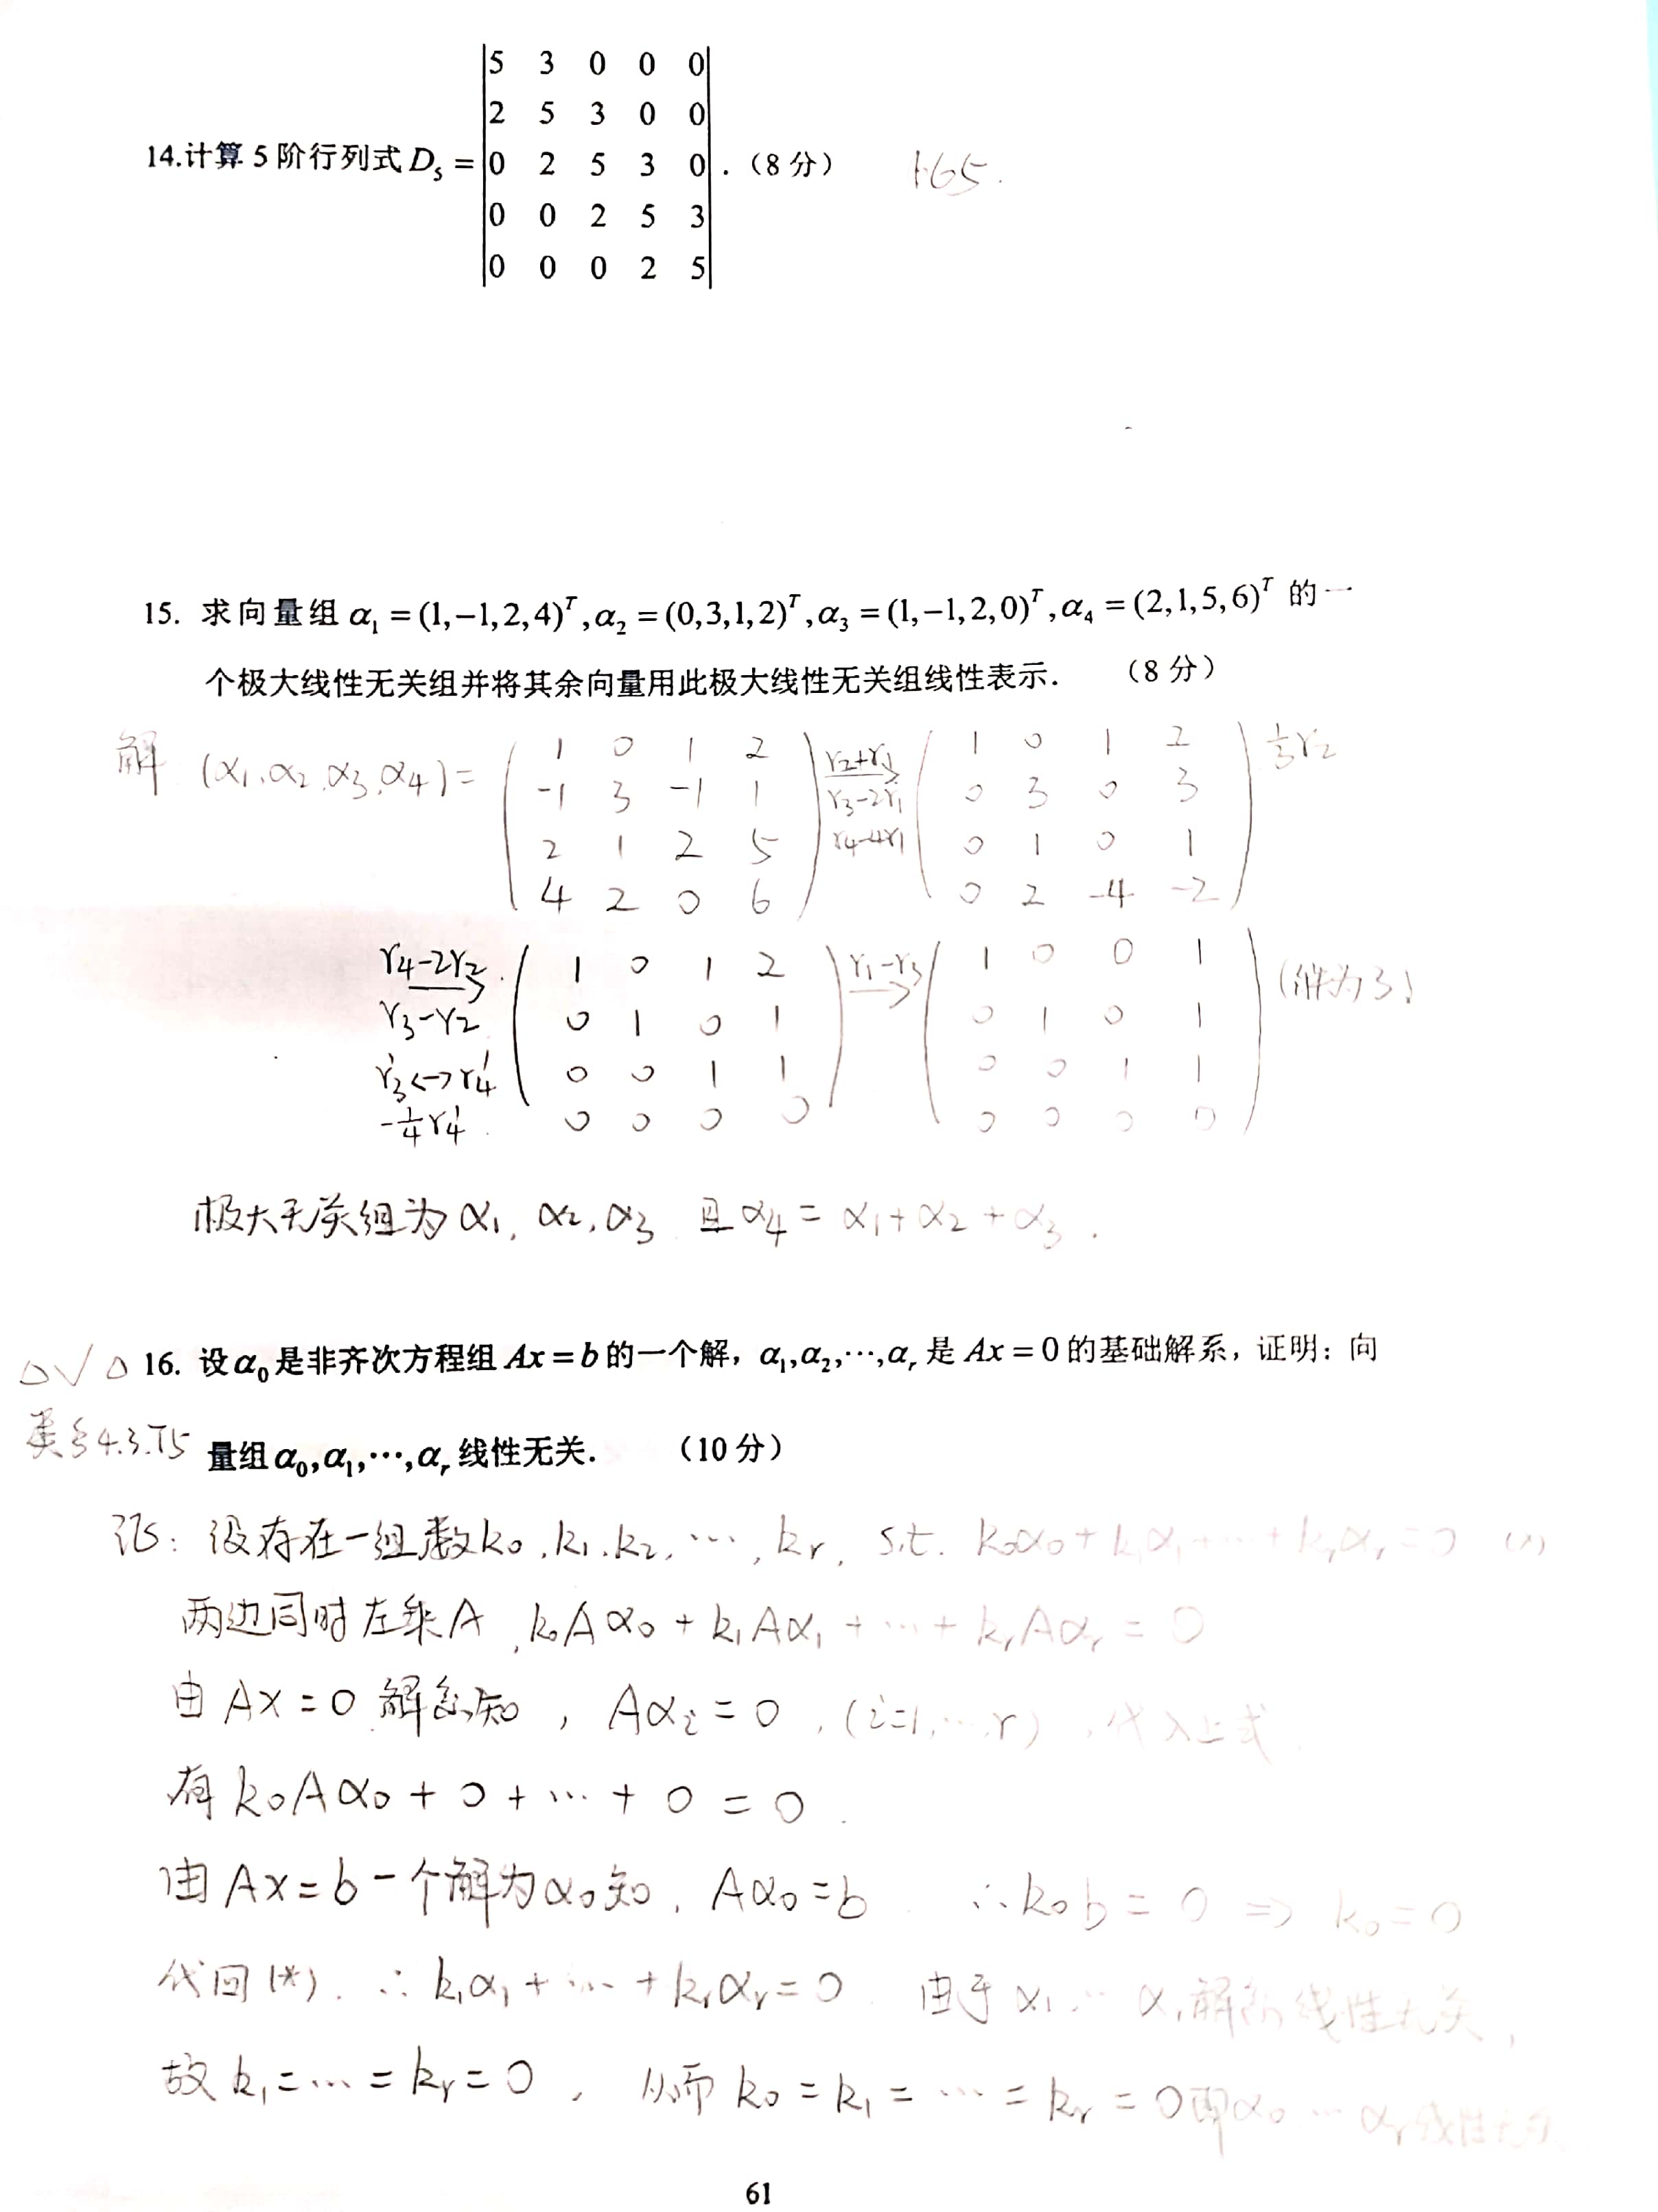 14.计算 5 阶行列式 D₅ = |5 3 0 0 0|
|2 5 3 0 0|
|0 2 5 3 0| .（8 分） 165.
|0 0 2 5 3|
|0 0 0 2 5|
15. 求向量组 α₁ = (1,−1,2,4)ᵀ,α₂ = (0,3,1,2)ᵀ,α₃ = (1,−1,2,0)ᵀ,α₄ = (2,1,5,6)ᵀ 的一
个极大线性无关组并将其余向量用此极大线性无关组线性表示. （8 分）
解 (α₁,α₂,α₃,α₄) = ( 1 0 1 2 ; -1 3 -1 1 ; 2 1 2 5 ; 4 2 0 6 ) r₂+r₁ r₃-2r₁ r₄-4r₁ → ( 1 0 1 2 ; 0 3 0 3 ; 0 1 0 1 ; 0 2 -4 -2 ) 1/3 r₂
r₄-2r₂ r₃-r₂ r₃'↔r₄' -1/4 r₄' → ( 1 0 1 2 ; 0 1 0 1 ; 0 0 1 1 ; 0 0 0 0 ) r₁-r₃ → ( 1 0 0 1 ; 0 1 0 1 ; 0 0 1 1 ; 0 0 0 0 ) (秩为3)
极大无关组为 α₁, α₂, α₃ 且 α₄ = α₁+α₂+α₃.
△√△ 16. 设α₀是非齐次方程组 Ax = b 的一个解，α₁,α₂,⋯,α_r 是 Ax = 0 的基础解系，证明：向
4.3.T5 量组α₀,α₁,⋯,α_r 线性无关. （10 分）
证：设存在一组数k₀,k₁,k₂,⋯,k_r, s.t. k₀α₀+k₁α₁+⋯+k_rα_r=0
两边同时左乘A, k₀Aα₀+k₁Aα₁+⋯+k_rAα_r=0
由 Ax=0 解系知, Aαᵢ=0, (i=1,⋯,r), 代入上式
有 k₀Aα₀+0+⋯+0=0.
由 Ax=b 一个解为α₀知, Aα₀=b ∴k₀b=0 ⇒ k₀=0
代回(*). ∴k₁α₁+⋯+k_rα_r=0 由于α₁⋯α_r 线性无关,
故 k₁=⋯=k_r=0, 从而 k₀=k₁=⋯=k_r=0即α₀⋯α_r线性无关
61